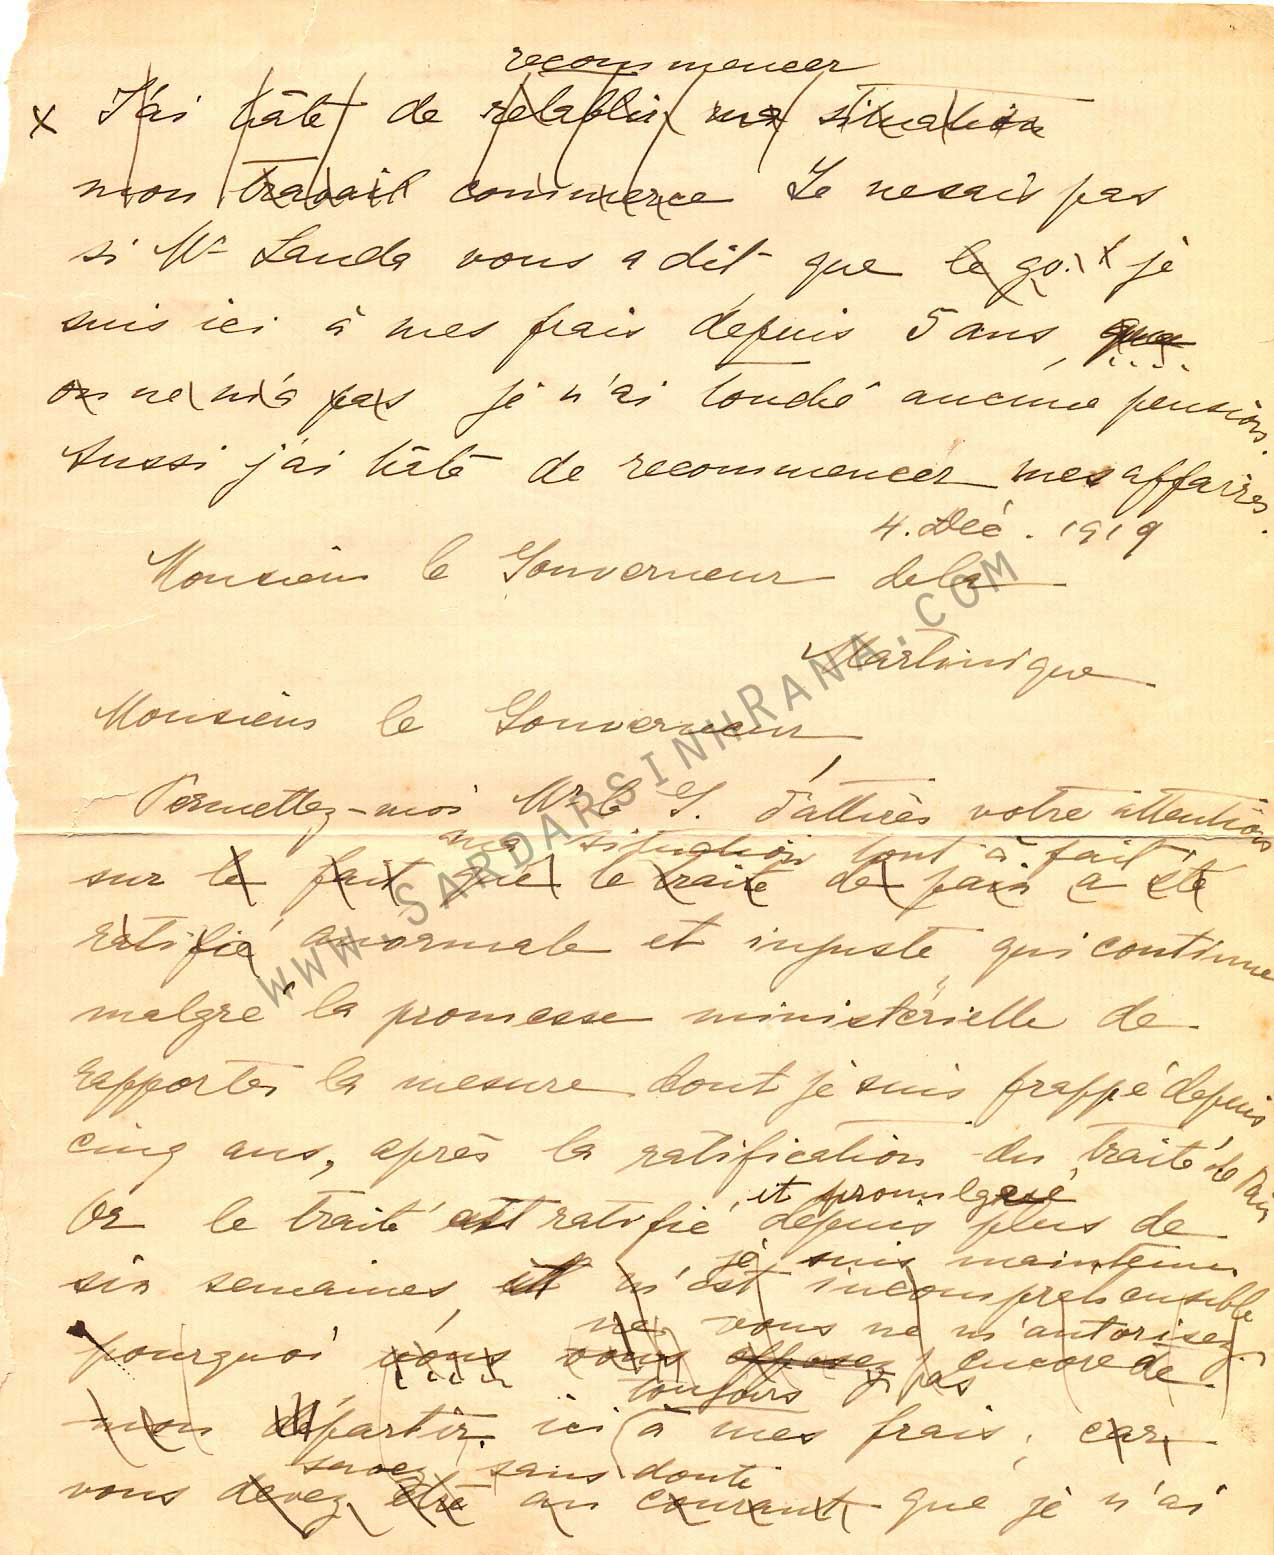 recommencer
x J'ai hâte de rétablir ma situation
mon travail commerce Je ne sais pas
si Mr Landa vous a dit que le go. x je
suis ici à mes frais depuis 5 ans, que
on ne m'a pas je n'ai touché aucune pension.
Aussi j'ai hâte de recommencer mes affaires.
4. Déc. 1919
Monsieur le Gouverneur de la
Martinique
Monsieur le Gouverneur,
Permettez-moi Mr le G. d'attirer votre attention
ma situation tout à fait
sur le fait que le traité de paix a été
ratifié anormale et injuste qui continue
malgré la promesse ministérielle de
rapporter la mesure dont je suis frappé depuis
cinq ans, après la ratification du traité de Paix
et promulgué
Or le traité est ratifié depuis plus de
je suis maintenu
six semaines, et m'est incompréhensible
ne vous ne m'autorisez
pourquoi vous vous opposez encore de
toujours pas
mon départir. ici à mes frais, car
savez sans doute
vous devez être au courant que je n'ai
www.SardarsinhRana.com